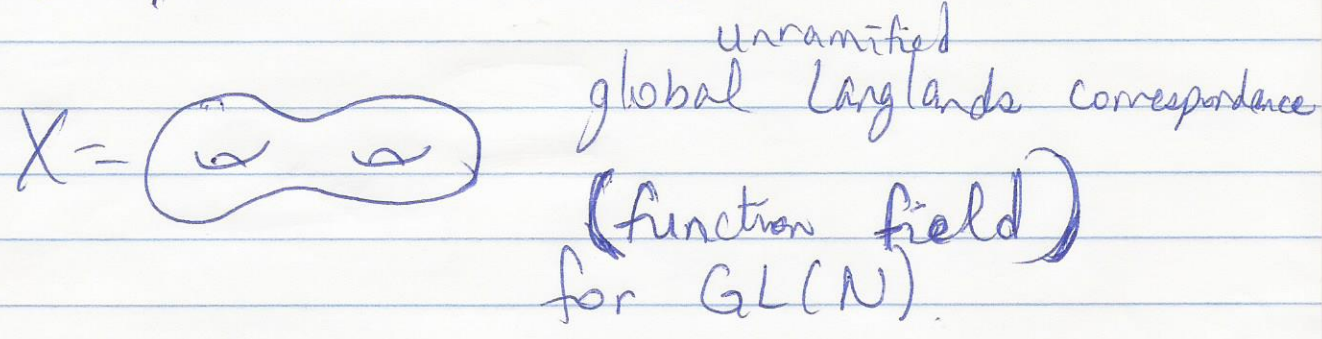 unramified
X = global Langlands correspondence
(function field)
for GL(N).